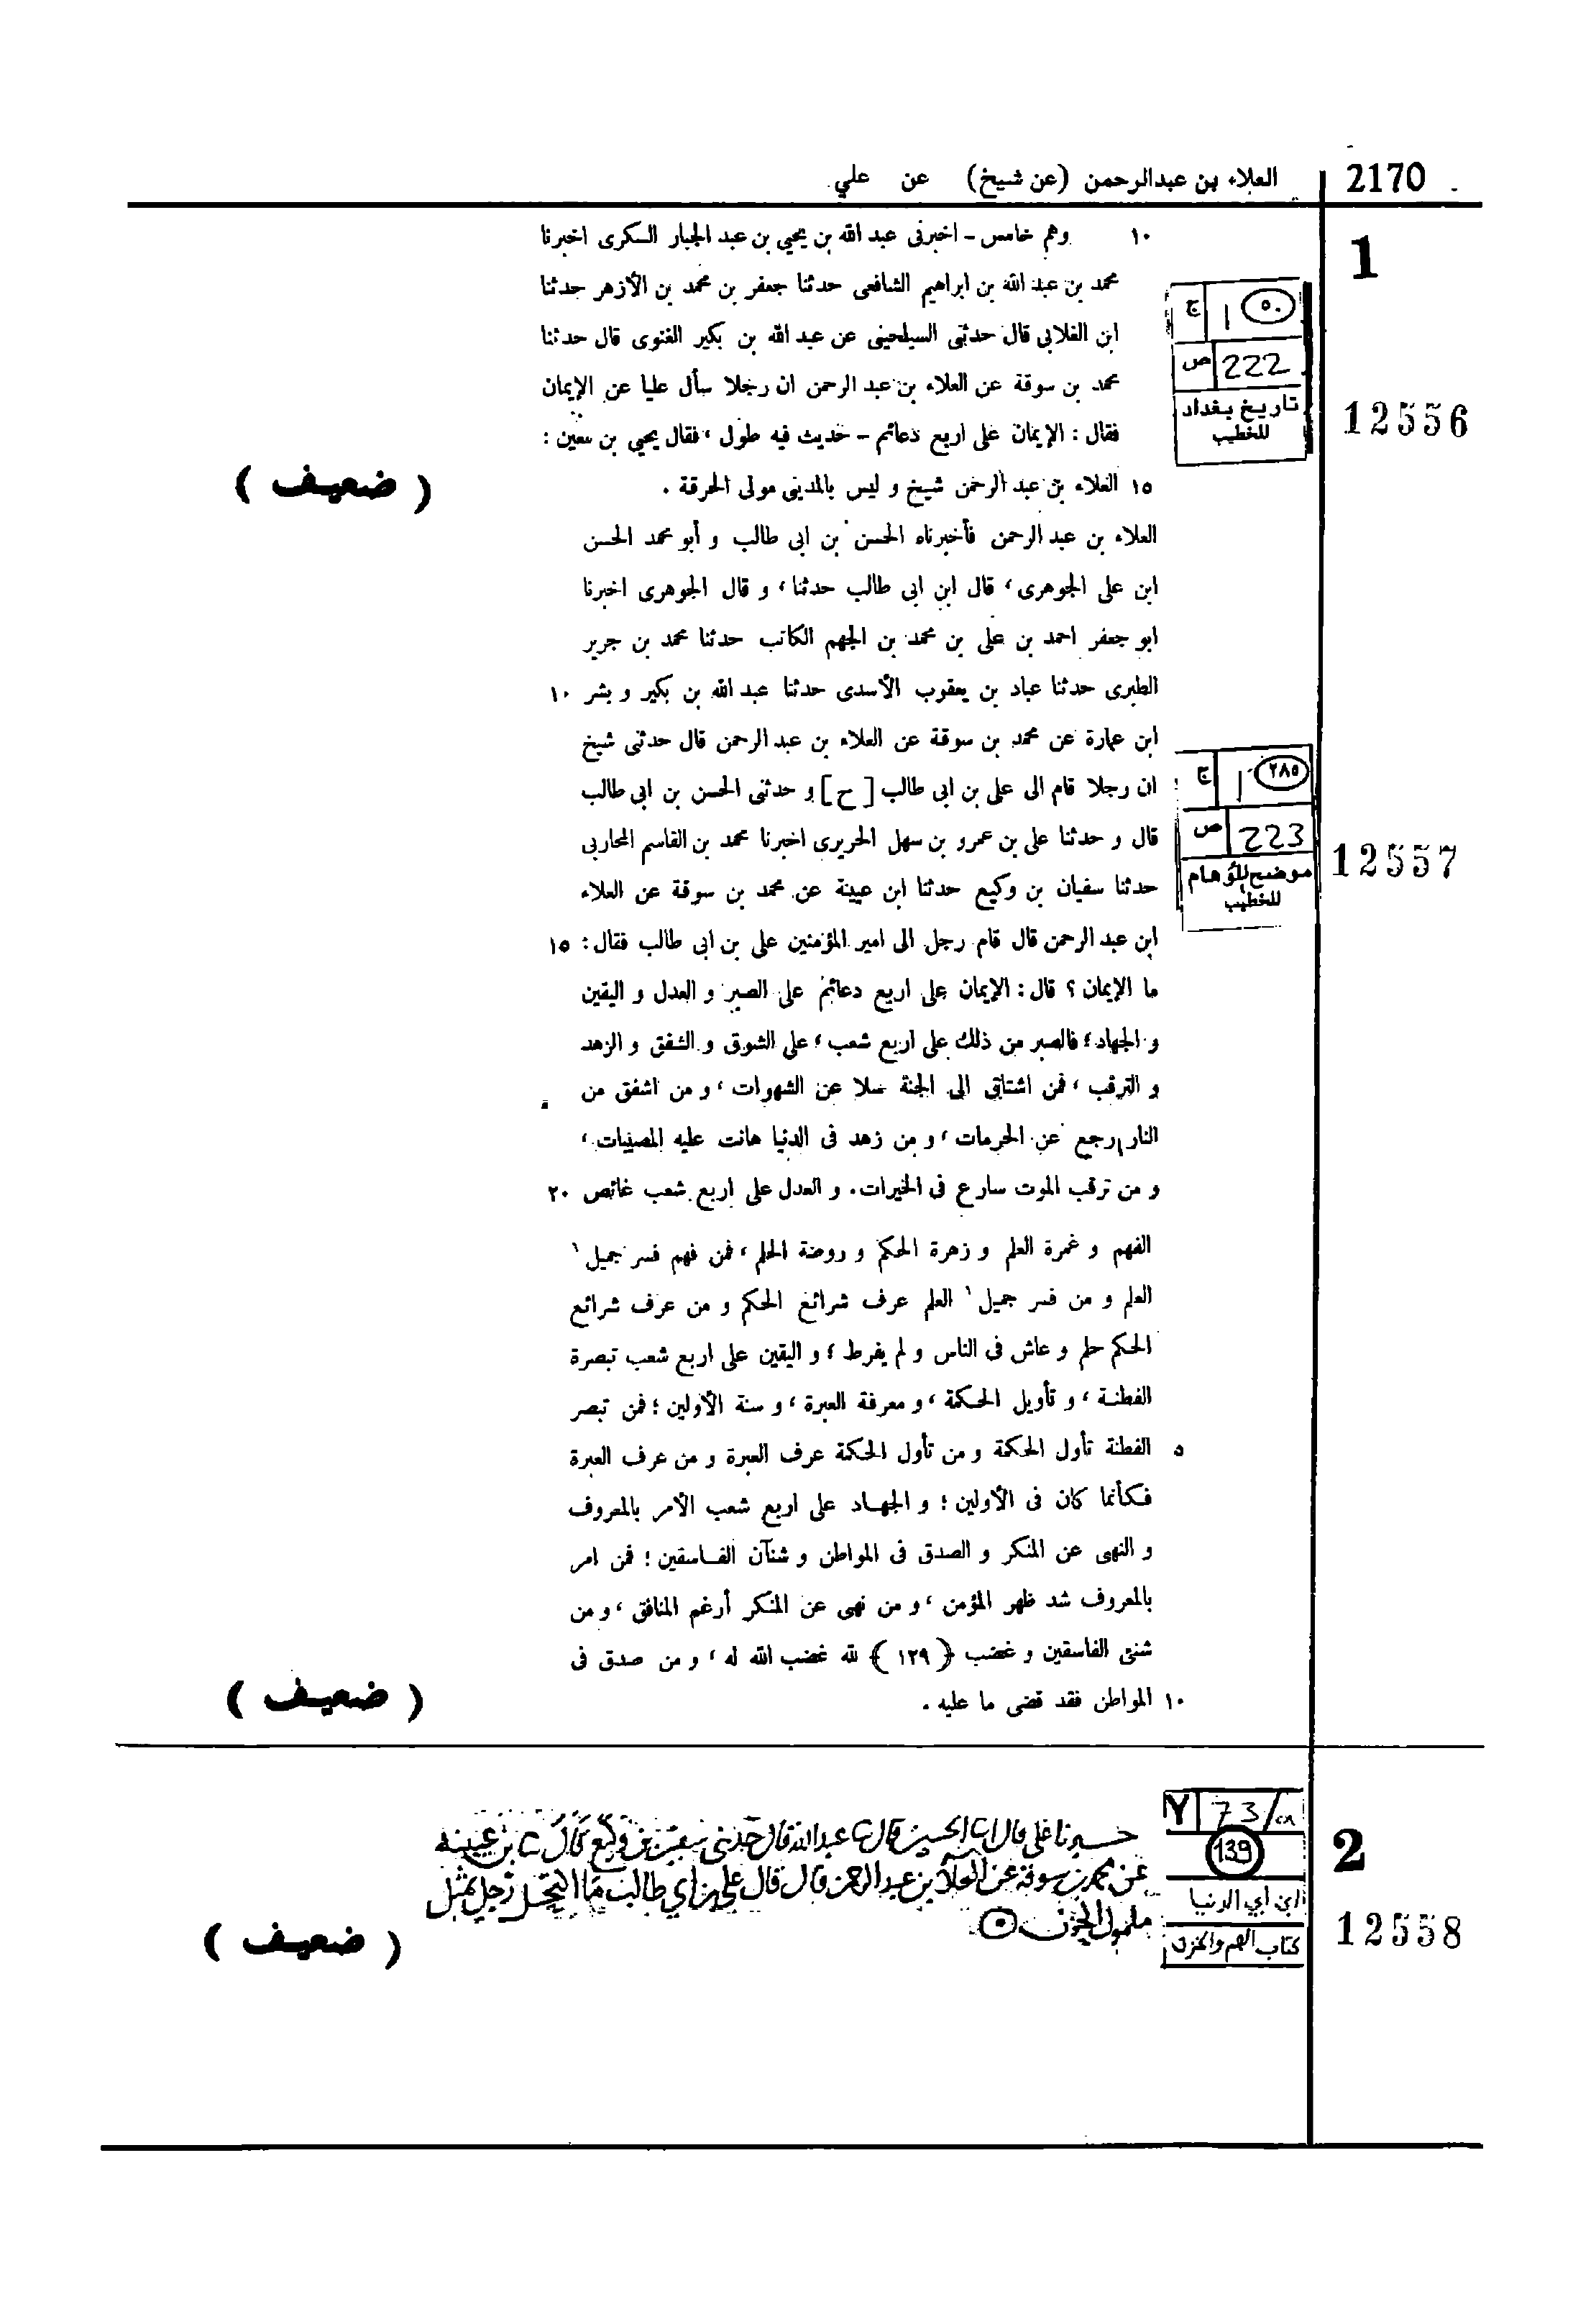 2170 العلاء بن عبدالرحمن (عن شيخ) عن علي
1
١٠ وهم خامس - اخبرنى عبد الله بن يحيى بن عبد الجبار السكرى اخبرنا
محمد بن عبد الله بن ابراهيم الشافعى حدثنا جعفر بن محمد بن الأزهر حدثنا
ابن الغلابى قال حدثنى السيلحينى عن عبد الله بن بكير الغنوى قال حدثنا
محمد بن سوقة عن العلاء بن عبد الرحمن ان رجلا سأل عليا عن الإيمان
فقال : الإيمان على اربع دعائم - حديث فيه طول ، فقال يحيى بن معين :
١٥ العلاء بن عبد الرحمن شيخ و ليس بالمدينى مولى الحرقة .
( ضعيف )
ج ١ ٥٠
ص 222
تاريخ بغداد
للخطيب
12556
العلاء بن عبد الرحمن فأخبرناه الحسن بن ابى طالب و أبو محمد الحسن
ابن على الجوهرى ، قال ابن ابى طالب حدثنا ، و قال الجوهرى اخبرنا
ابو جعفر احمد بن على بن محمد بن الجهم الكاتب حدثنا محمد بن جرير
الطبرى حدثنا عباد بن يعقوب الأسدى حدثنا عبد الله بن بكير و بشر ١٠
ابن عمارة عن محمد بن سوقة عن العلاء بن عبد الرحمن قال حدثنى شيخ
ان رجلا قام الى على بن ابى طالب [ ح ] و حدثنى الحسن بن ابى طالب
قال و حدثنا على بن عمرو بن سهل الحريرى اخبرنا محمد بن القاسم المحاربى
حدثنا سفيان بن وكيع حدثنا ابن عيينة عن محمد بن سوقة عن العلاء
ابن عبد الرحمن قال قام رجل الى امير المؤمنين على بن ابى طالب فقال : ١٥
ما الإيمان ؟ قال : الإيمان على اربع دعائم على الصبر و العدل و اليقين
و الجهاد ؛ فالصبر من ذلك على اربع شعب ، على الشوق و الشفق و الزهد
و الترقب ، فمن اشتاق الى الجنة سلا عن الشهوات ، و من اشفق من
النار رجع عن الحرمات ، و من زهد فى الدنيا هانت عليه المصيبات ،
و من ترقب الموت سارع فى الخيرات . و العدل على اربع شعب غائص ٢٠
الفهم و غمرة العلم و زهرة الحكم و روضة الحلم ، فمن فهم فسر جميل ١
العلم و من فسر جميل ١ العلم عرف شرائع الحكم و من عرف شرائع
الحكم حلم و عاش فى الناس و لم يفرط ؛ و اليقين على اربع شعب تبصرة
الفطنة ، و تأويل الحكمة ، و معرفة العبرة ، و سنة الأولين ؛ فمن تبصر
٥ الفطنة تأول الحكمة و من تأول الحكمة عرف العبرة و من عرف العبرة
فكأنما كان فى الأولين ؛ و الجهاد على اربع شعب الأمر بالمعروف
و النهى عن المنكر و الصدق فى المواطن و شنآن الفاسقين ؛ فمن امر
بالمعروف شد ظهر المؤمن ، و من نهى عن المنكر أرغم المنافق ، و من
شنئ الفاسقين و غضب ( ١٢٩ ) لله غضب الله له ، و من صدق فى
١٠ المواطن فقد قضى ما عليه .
( ضعيف )
ج ١ ٢٨٥
ص 223
موضح الأوهام
للخطيب
12557
2
حسرنا على قال الحسين قال عبد الله قال حدثنى سفين بن وكيع قال بن عيينة
عن محمد بن سوقة عن العلاء بن عبد الرحمن قال قال على بن أبي طالب
( ضعيف )
73
139
ابن أبي الدنيا
كتاب الهم والحزن
12558